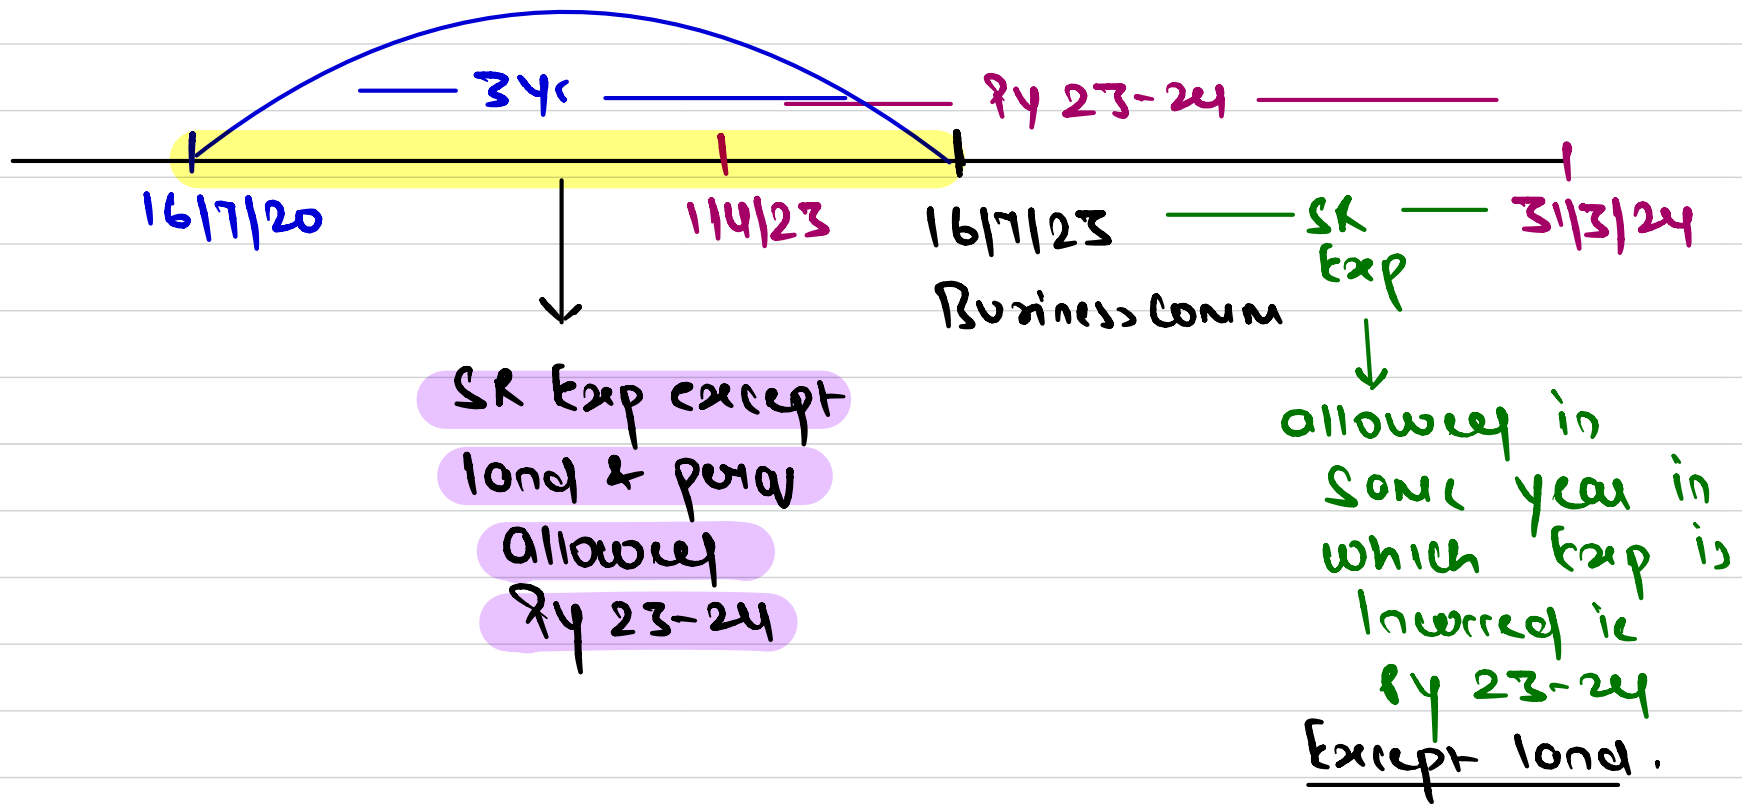 3 Yr
PY 23-24
16/7/20
1/4/23
16/7/23
SR
Exp
31/3/24
Business Comm
SR Exp except
land & perq
allowed
PY 23-24
allowed in
Same year in
which Exp is
Incurred ie
PY 23-24
Except land.